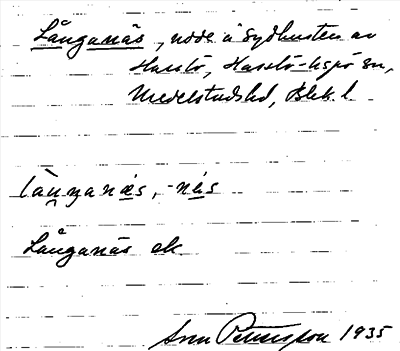 Långanäs, udde å Sydkusten av
Hasslö, Hasslö-Aspö sn,
Medelstads hd, Blek. l.
làŋŋanæs, -näs
Långanäs ek
Sven Petersson 1935